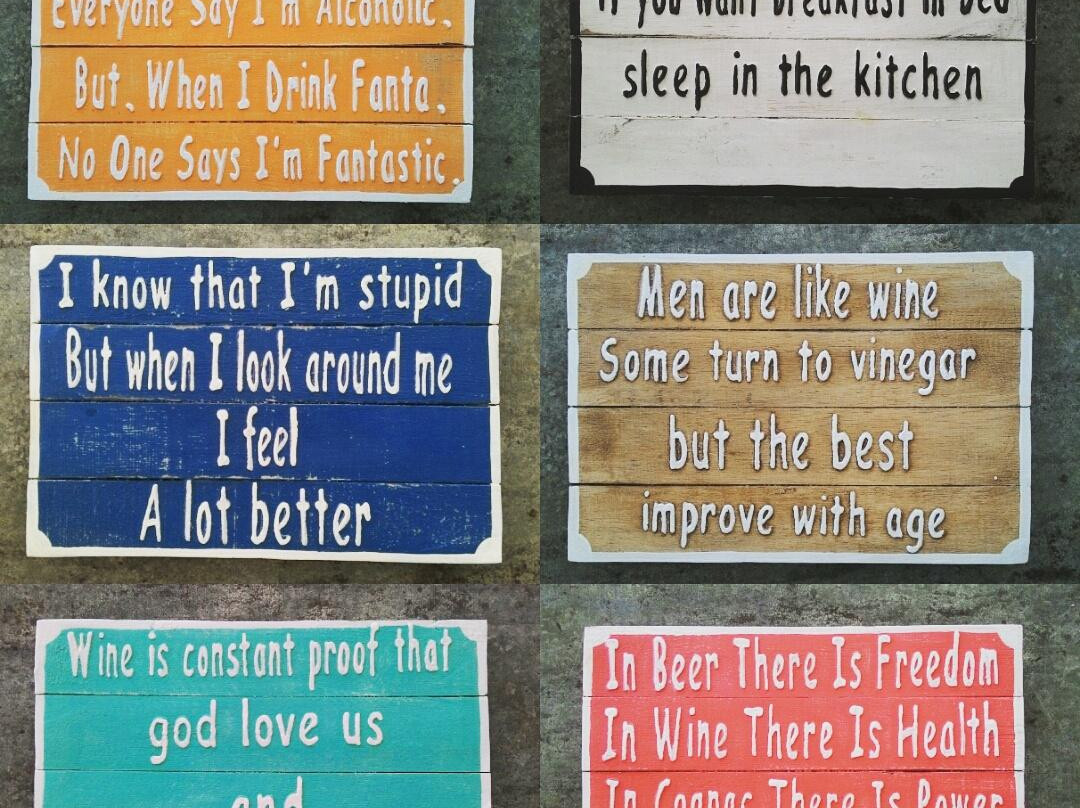 Everyone Say I'm Alcoholic,
But, When I Drink Fanta,
No One Says I'm Fantastic.
If you want breakfast in bed
sleep in the kitchen
I know that I'm stupid
But when I look around me
I feel
A lot better
Men are like wine
Some turn to vinegar
but the best
improve with age
Wine is constant proof that
god love us
and
In Beer There Is Freedom
In Wine There Is Health
In Cognac There Is Power